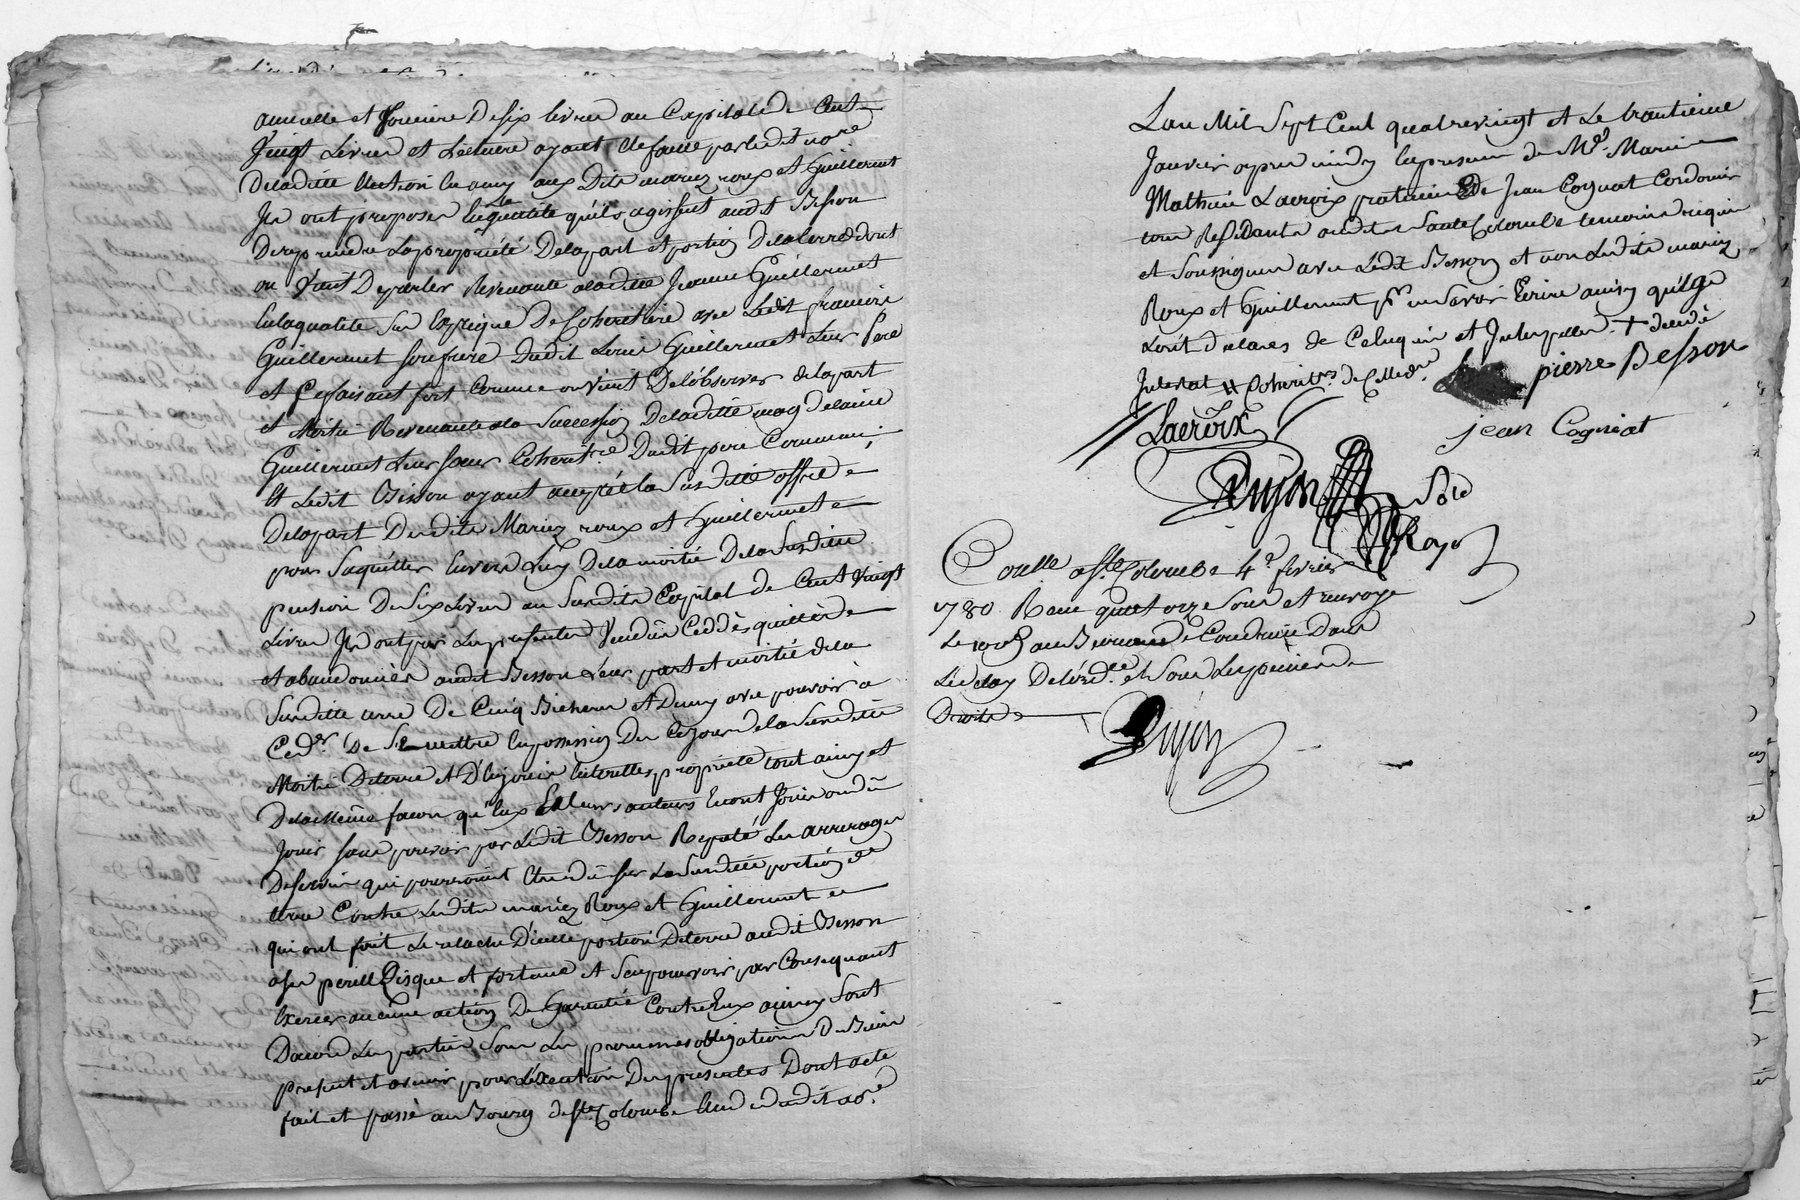 annuelle et fonciere De six livres au Capital de Cent
Vingt Livres et Lecture ayant été faite par ledit no.re
De laditte Auction
aux Dits mariez roux et Guillermet
Ils ont proposer en La qualité qu'ils agissent audt Besson
De reprendre La propriété De la part et portion De la terre dont
on Vient De parler Revenante a laditte Jeanne Guillermet
En la qualité Sur Expliqué De Coheretiere avec Ledit francois
Guillermet son frere Dudit Louis Guillermet Leur Pere
et Ce faisant fort Comme on Vient De l'observer de la part
et Moitié Revenante a la Succession De laditte magdelaine
Guillermet Leur soeur Coherit.re Dudit pere Commun;
Et Ledit Besson ayant accepté la Susditte offre
De la part Desdits Mariez roux et Guillermet
pour S'aquitter Envers Luy De la moitié De la Susditte
pension De Six Livres au Susdits Capital de Cent Vingt
Livres Ils ont par Les presentes Vendu Ceddé quitté
et abandonnér audit Besson Leur part et moitié de la
Susditte terre De Cinq Bicherees et Demy avec pouvoir a
Ced.r De Se mettre En possession De Ce jour de la Susditte
Moitié De terre et D'En jouir En toutte propriété tout ainsy et
De la Même façon qu'Eux Et Leurs auteurs En ont Joui ou dû
Jouir sans pouvoir par Ledit Besson Repeté Les arrerages
De servis qui pourroient Etre dû sur La Susditte portion de
terre Contre Lesdits mariez Roux et Guillermet
qui ont fait Le relache D'icelle portion De terre audit Besson
a ses perill Risque et fortune et Sans pouvoir par Consequant
Exercer aucune action De Garantie Contre Eux ainsy Sont
D'acord Les parties Sous Les promesses obligations De Biens
present et avenir pour L'Exécution Des presentes Dont acte
fait et passé au Bourg de Ste Colombe Etude dudit no.re
L'an Mil Sept Cent quatrevingt et Le trantieme
Janvier apres midy En presence de Me. Marie
Mathieu Lacroix praticien Et de Jean Cogniat Cordonier
tous Residants audit Sainte Colombe temoins requis
et Soussignes avec Ledit Besson et non Lesdits mariez
Roux et Guillermet pr ne Savoir Ecrire ainsy qu'ils
L'ont declares de Ce Enquis et Interpellés. + decedé
Intestat # Coherit.re de Cellede.
pierre Besson
Lacroix
jean Cogniat
Dujon
Roy
Coulle a Ste Colombe 4.e fevrier
1780 Recu quatorze Sous et renvoyé
Le
au Bureau de Condrieu Dans
Le delay De l'Ed. et Sous Les peines
Droits
Dujon